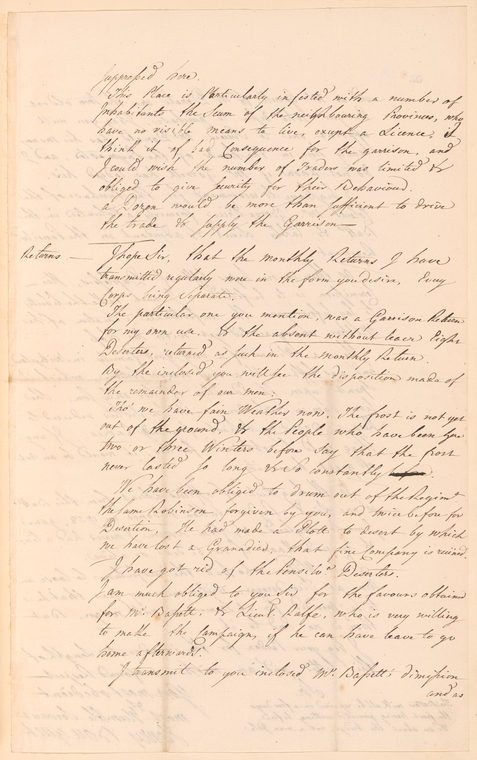 supposed here.
This Place is Particularly infested with a number of
Inhabitants the Scum of the neighbouring Provinces, who
have no visible means to live, except a Licence, I
think it of bad Consequence for the garrison, and
I could wish the number of Traders was limited &
obliged to give security for their Behaviour.
a Dozen would be more than sufficient to drive
the trade & supply the Garrison—
Returns — I hope Sir, that the monthly Returns I have
transmitted regularly were in the form you desire, Every
Corps being separate.
The particular one you mention, was a Garrison Return
for my own use, & the absent without leave Eight
Deserters, returned as such in the monthly Return.
By the inclosed you will see the disposition made of
the remainder of our men.
Tho' we have fair Weather now. The frost is not yet
out of the ground, & the People who have been here
two or three Winters before say that the frost
never lasted so long & so constantly
We have been obliged to drum out of the Regimt
the same Robinson forgiven by you, and twice before for
Desertion. He had made a Plott to desert by which
we have lost a Granadier, that fine Company is ruined.
I have got rid of the Pensilva Deserters.
I am much obliged to you Sir for the favours obtained
for Mr. Bassett, & Lieut. Ralfe, who is very willing
to make the Campaign, if he can have leave to go
home afterwards.
I transmit to you inclosed Mr. Bassett's dimission
and as